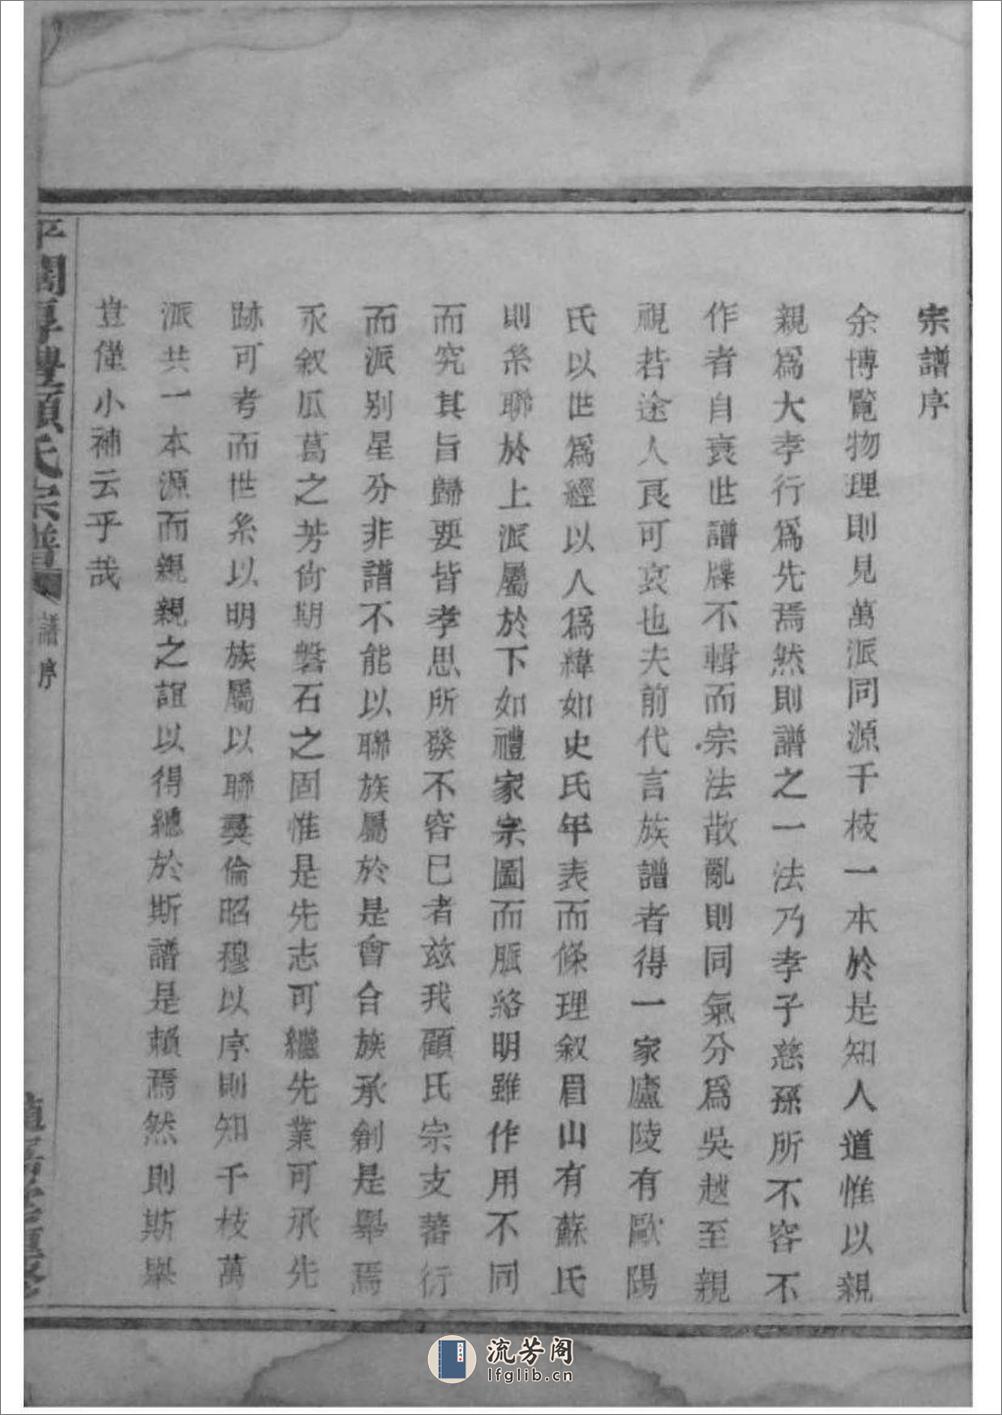 宗譜序
余博覧物理則見萬派同源千枝一本於是知人道惟以親
親爲大孝行爲先焉然則譜之一法乃孝子慈孫所不容不
作者自衰世譜牒不輯而宗法散亂則同氣分爲吳越至親
視若途人良可哀也夫前代言族譜者得一家廬陵有歐陽
氏以世爲經以人爲緯如史氏年表而條理叙眉山有蘇氏
則系聯於上派屬於下如禮家宗圖而脈絡明雖作用不同
而究其旨歸要皆孝思所發不容已者茲我顧氏宗支蕃衍
而派别星分非譜不能以聯族屬於是會合族承創是舉焉
永叙瓜葛之芳尚期磐石之固惟是先志可繼先業可承先
跡可考而世系以明族屬以聯彝倫昭穆以序則知千枝萬
派共一本源而親親之誼以得總於斯譜是賴焉然則斯舉
豈僅小補云乎哉
顧氏宗譜
譜序
流芳阁
lfglib.cn